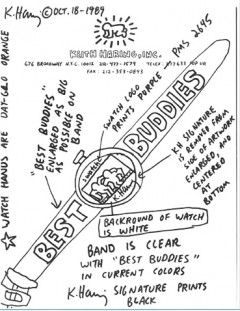 K. Haring © OCT. 18-1989
KEITH HARING, INC.
676 BROADWAY N.Y.C. 10012
PMS 2645
☆ WATCH HANDS ARE DAY-GLO ORANGE
"BEST BUDDIES"
ENLARGED AS BIG
AS POSSIBLE ON
BAND
SWATCH LOGO
PRINTS PURPLE
BEST BUDDIES
SWATCH
K. Haring
K.H SIGNATURE
IS REMOVED FROM
SIDE OF ARTWORK
ENLARGED, AND
CENTERED
AT
BOTTOM
BACKROUND OF WATCH
IS WHITE
BAND IS CLEAR
WITH "BEST BUDDIES"
IN CURRENT COLORS
K. Haring SIGNATURE PRINTS
BLACK